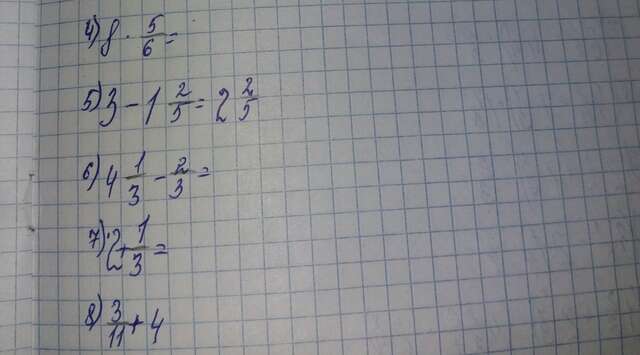 4) 8 · 5/6 =
5) 3 - 1 2/5 = 2 2/5
6) 4 1/3 - 2/3 =
7) 2 + 1/3 =
8) 3/11 + 4